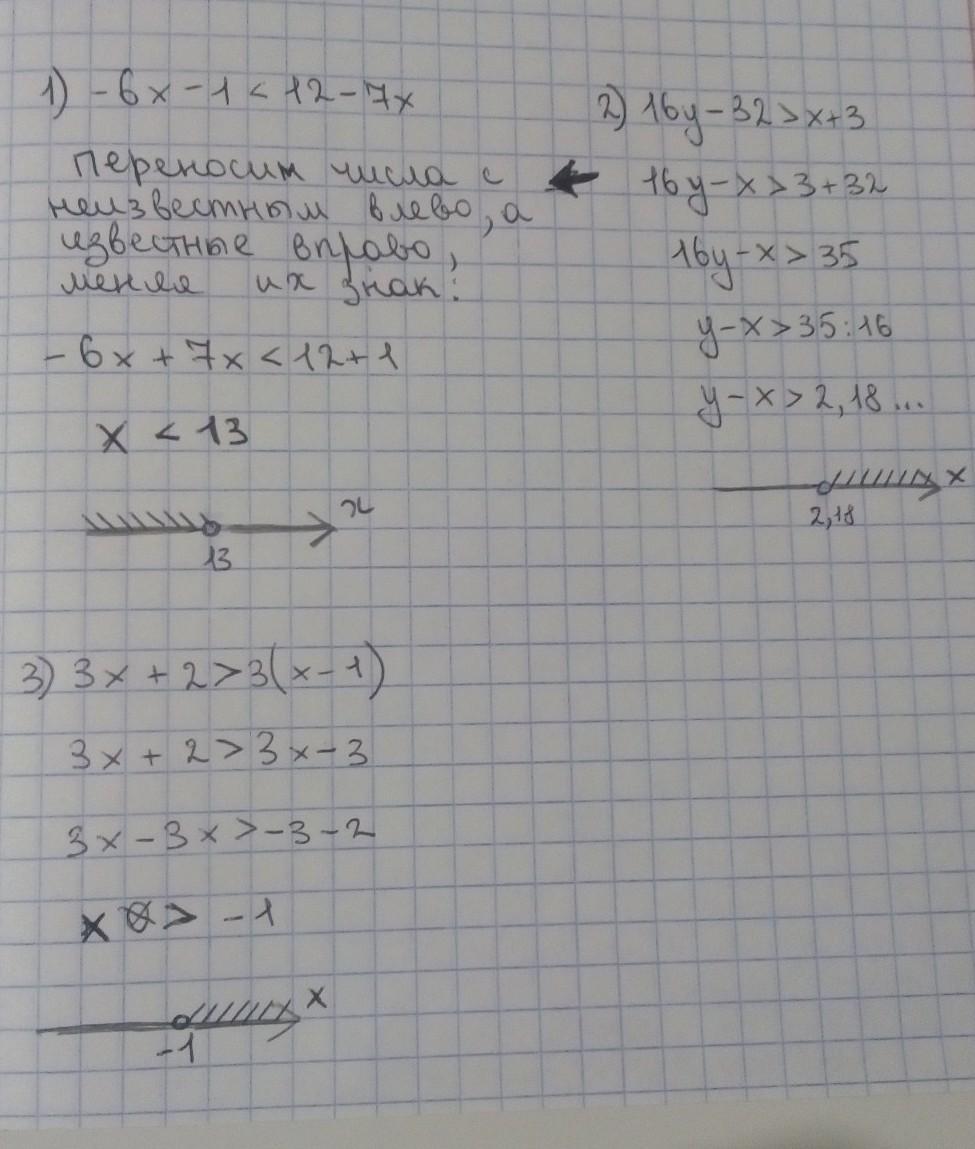 1) -6x-1<12-7x
переносим числа с
неизвестным влево, а
известные вправо,
меняя их знак:
-6x+7x<12+1
x<13
x
13
2) 16y-32>x+3
16y-x>3+32
16y-x>35
y-x>35:16
y-x>2,18...
x
2,18
3) 3x+2>3(x-1)
3x+2>3x-3
3x-3x>-3-2
x > -1
x
-1